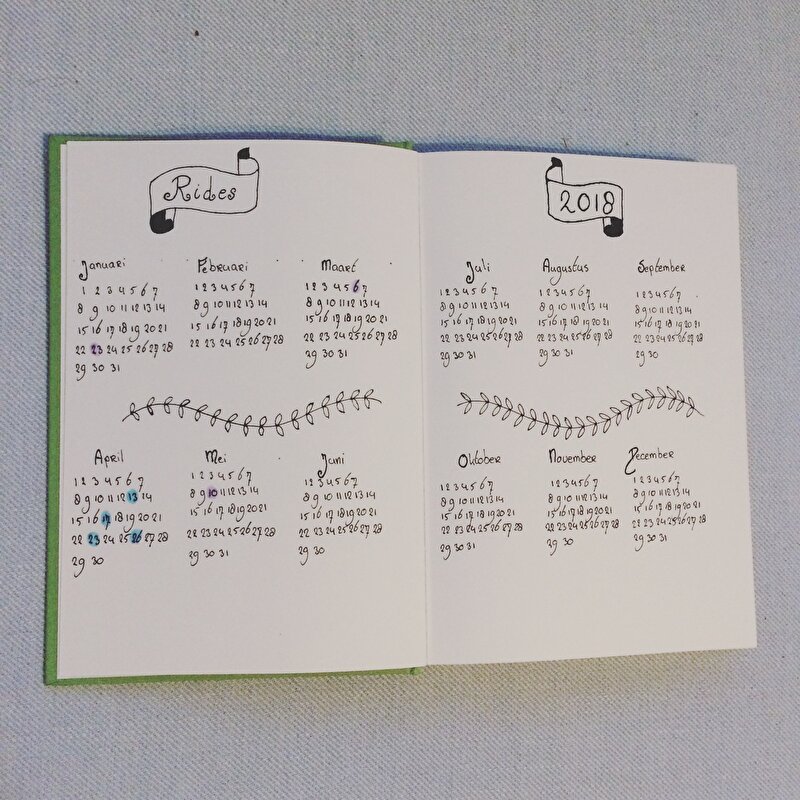 Rides
Januari
1 2 3 4 5 6 7
8 9 10 11 12 13 14
15 16 17 18 19 20 21
22 23 24 25 26 27 28
29 30 31
Februari
1 2 3 4 5 6 7
8 9 10 11 12 13 14
15 16 17 18 19 20 21
22 23 24 25 26 27 28
Maart
1 2 3 4 5 6 7
8 9 10 11 12 13 14
15 16 17 18 19 20 21
22 23 24 25 26 27 28
29 30 31
April
1 2 3 4 5 6 7
8 9 10 11 12 13 14
15 16 17 18 19 20 21
22 23 24 25 26 27 28
29 30
Mei
1 2 3 4 5 6 7
8 9 10 11 12 13 14
15 16 17 18 19 20 21
22 23 24 25 26 27 28
29 30 31
Juni
1 2 3 4 5 6 7
8 9 10 11 12 13 14
15 16 17 18 19 20 21
22 23 24 25 26 27 28
29 30
2018
Juli
1 2 3 4 5 6 7
8 9 10 11 12 13 14
15 16 17 18 19 20 21
22 23 24 25 26 27 28
29 30 31
Augustus
1 2 3 4 5 6 7
8 9 10 11 12 13 14
15 16 17 18 19 20 21
22 23 24 25 26 27 28
29 30 31
September
1 2 3 4 5 6 7
8 9 10 11 12 13 14
15 16 17 18 19 20 21
22 23 24 25 26 27 28
29 30
Oktober
1 2 3 4 5 6 7
8 9 10 11 12 13 14
15 16 17 18 19 20 21
22 23 24 25 26 27 28
29 30 31
November
1 2 3 4 5 6 7
8 9 10 11 12 13 14
15 16 17 18 19 20 21
22 23 24 25 26 27 28
29 30
December
1 2 3 4 5 6 7
8 9 10 11 12 13 14
15 16 17 18 19 20 21
22 23 24 25 26 27 28
29 30 31